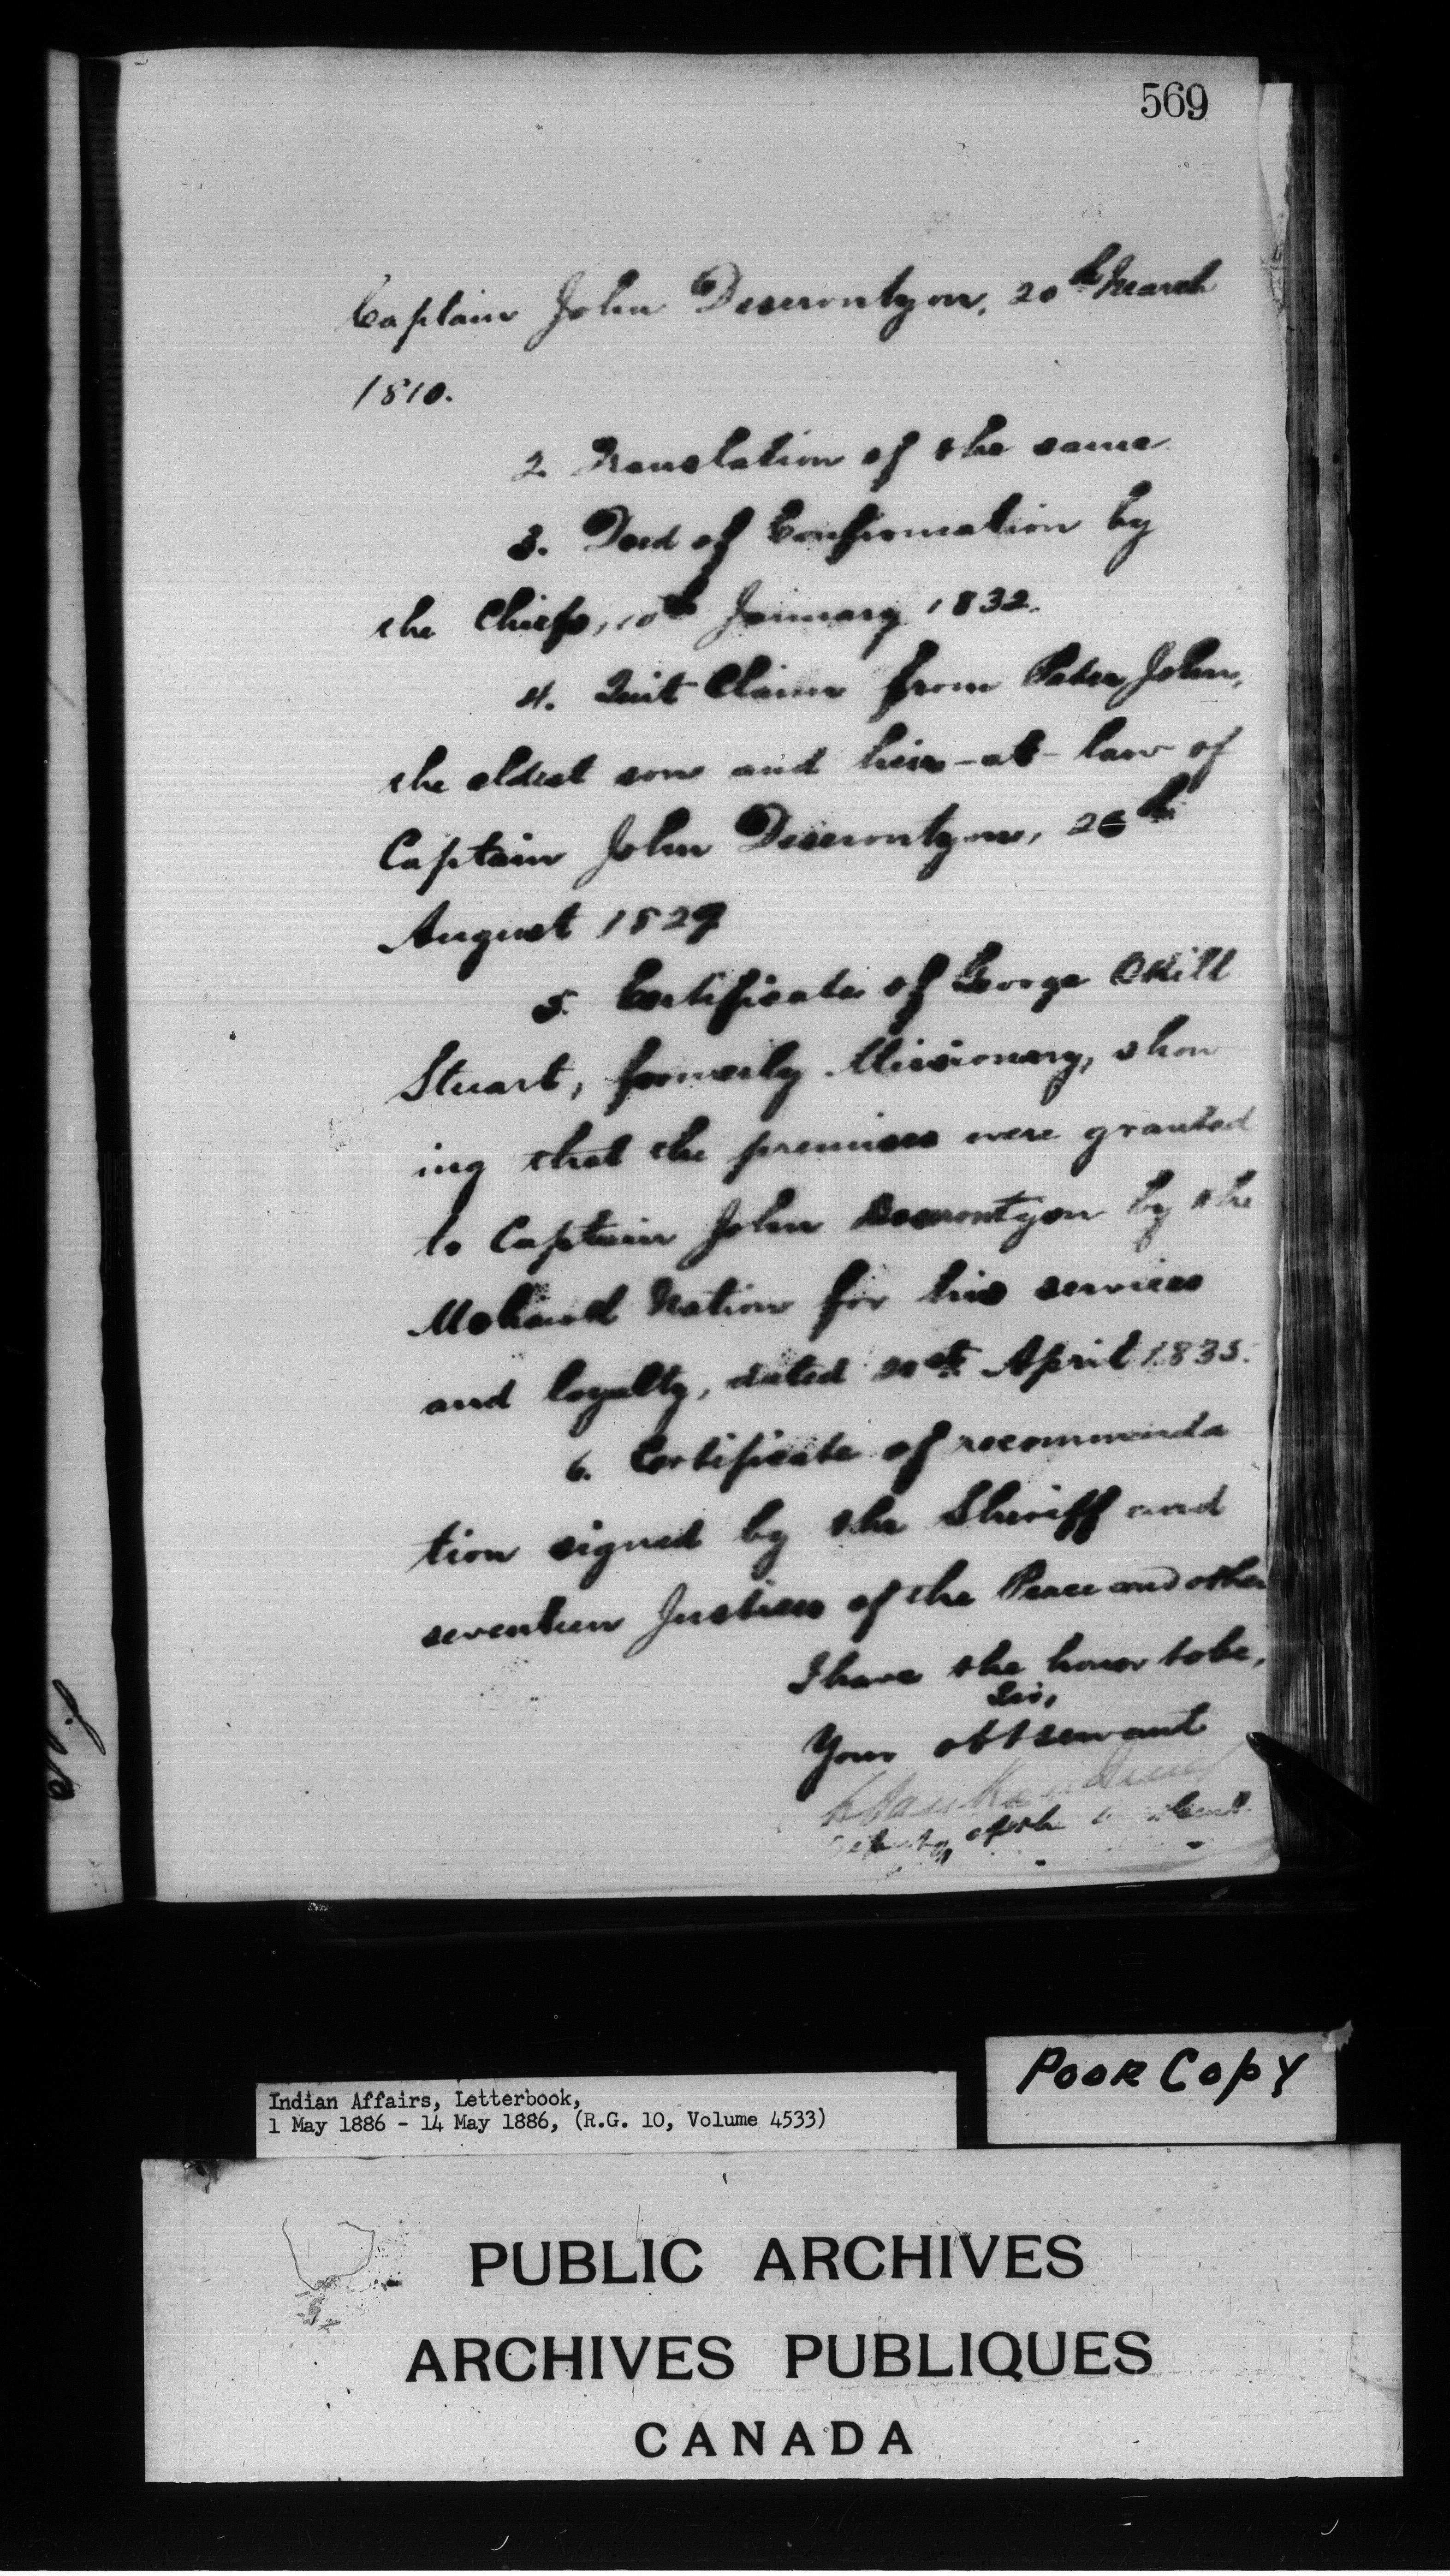 569
Captain John Deserontyon, 20th March
1810.
2. Translation of the same.
3. Deed of Confirmation by
the Chiefs, 10th January 1832.
4. Quit Claim from Peter John,
the eldest son and heir-at-law of
Captain John Deserontyon, 26th
August 1829
5. Certificate of George Okill
Stuart, formerly Missionary, show
ing that the premises were granted
to Captain John Deserontyon by the
Mohawk Nation for his services
and loyalty, dated April 1835.
6. Certificate of recommenda
tion signed by the Sheriff and
seventeen Justices of the Peace and other
I have the honor to be,
Sir,
Your obt servant
L VanKoughnet
Deputy of the
POOR COPY
Indian Affairs, Letterbook,
1 May 1886 - 14 May 1886, (R.G. 10, Volume 4533)
PUBLIC ARCHIVES
ARCHIVES PUBLIQUES
CANADA